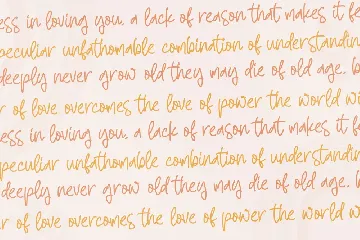 ess in loving you, a lack of reason that makes it
peculiar unfathomable combination of understandin
deeply never grow old they may die of old age..
r of love overcomes the love of power the world wi
ess in loving you, a lack of reason that makes it
peculiar unfathomable combination of understandin
deeply never grow old they may die of old age..
r of love overcomes the love of power the world wi